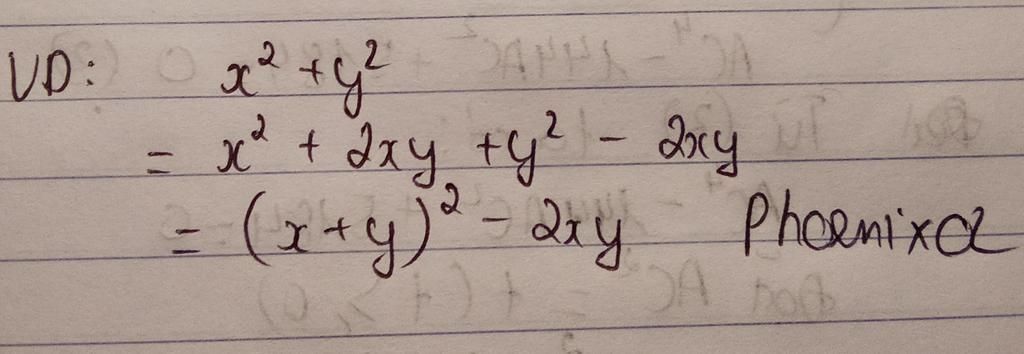 VD: x² + y²
= x² + 2xy + y² - 2xy
= (x + y)² - 2xy Phoenixα